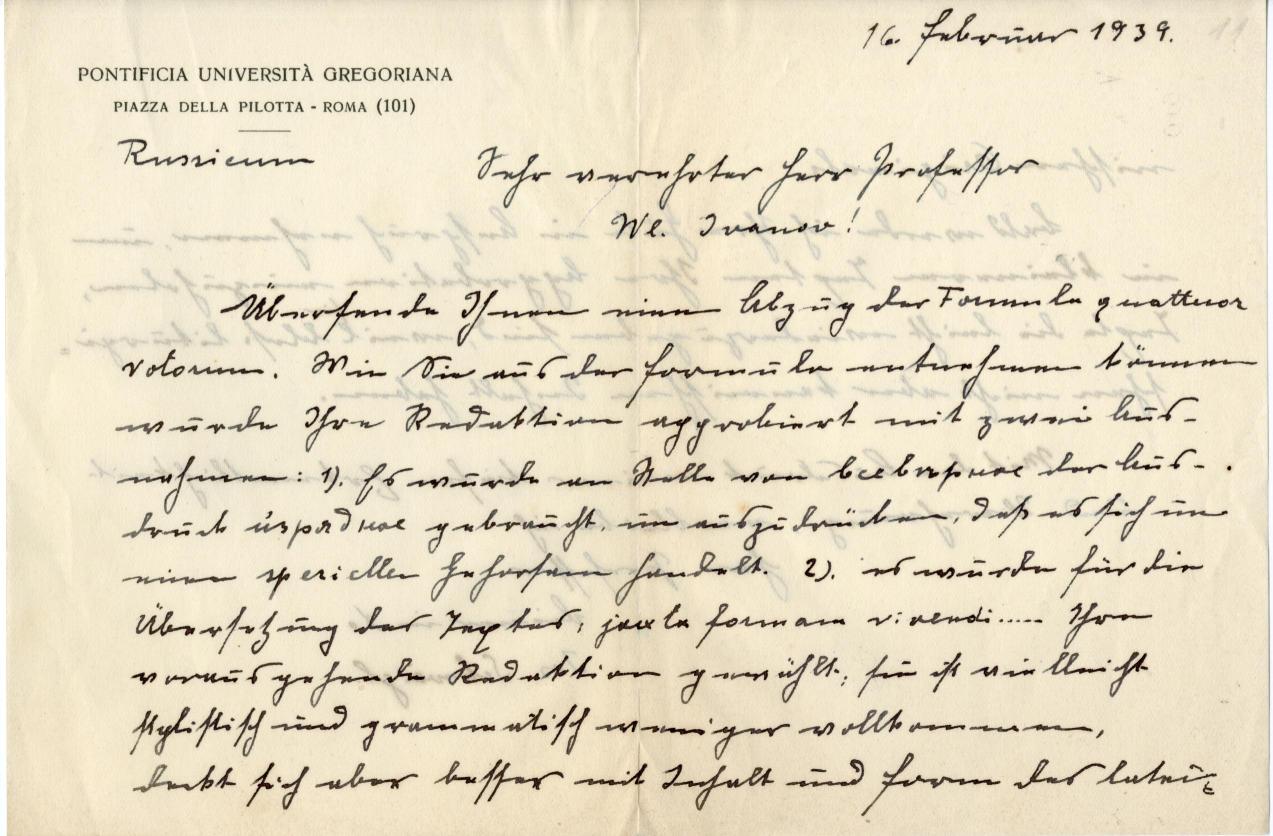 16. Februar 1939.
11
PONTIFICIA UNIVERSITÀ GREGORIANA
PIAZZA DELLA PILOTTA - ROMA (101)
Russicum
Sehr verehrter Herr Professor
Wl. Ivanov!
Übersende Ihnen einen Abzug der Formula quattuor
votorum. Wie Sie aus der Formula entnehmen können
wurde Ihre Redaktion approbiert mit zwei Aus-
nahmen: 1). Es wurde an Stelle von всеверное der Aus-
druck изрядное gebraucht, um auszudrücken, daß es sich um
einen speziellen Gehorsam handelt. 2). es wurde für die
Übersetzung des Textes: juxta formam vivendi..... Ihre
vorausgehende Redaktion gewählt; sie ist vielleicht
stylistisch und grammatisch weniger vollkommen,
deckt sich aber besser mit Inhalt und Form des latei-